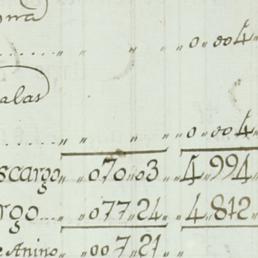 „ „ „ „ 0„004„
alas
„ „ „ „ 0„004„
scargo„ „070„03„ 4„994„
rgo„ „077„24„ 4„812„
e Anino„ 007„21„